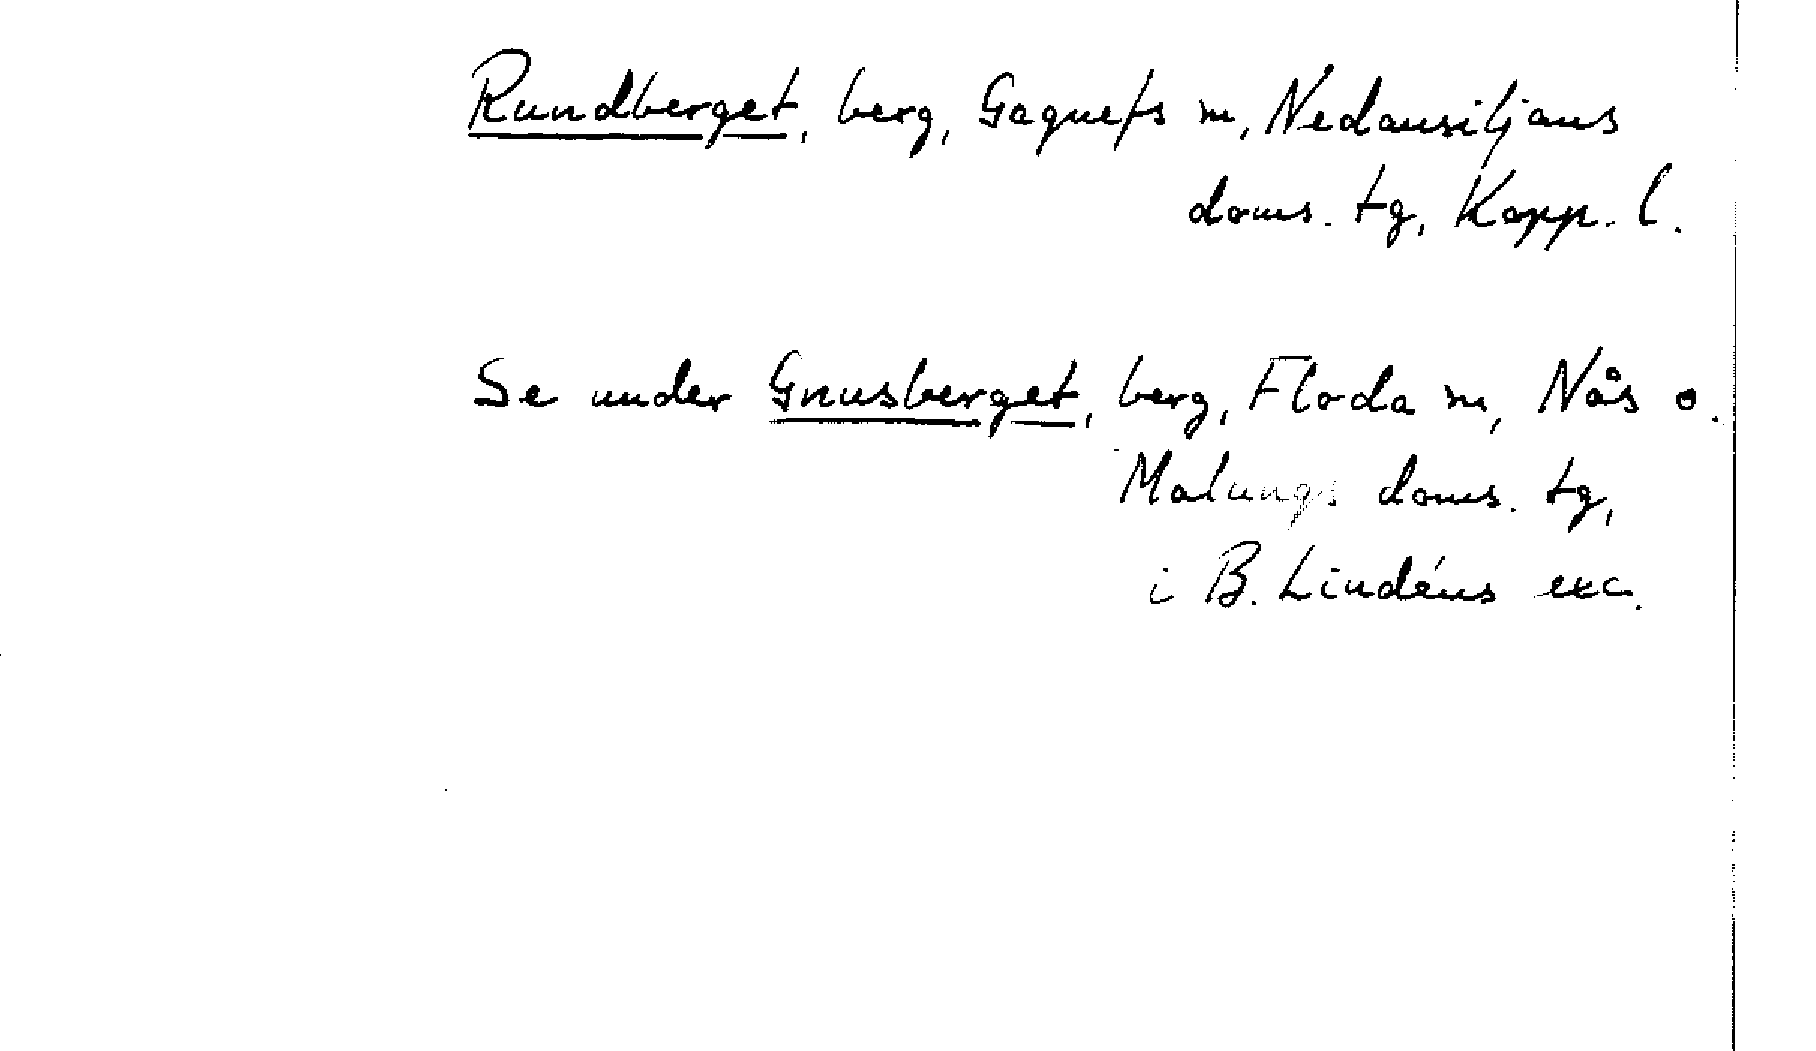 Rundberget, berg, Gagnefs sn, Nedansiljans
doms. tg, Kopp. l.
Se under Gnusberget, berg, Floda sn, Nås o.
Malungs doms. tg,
i B. Lindéns exc.